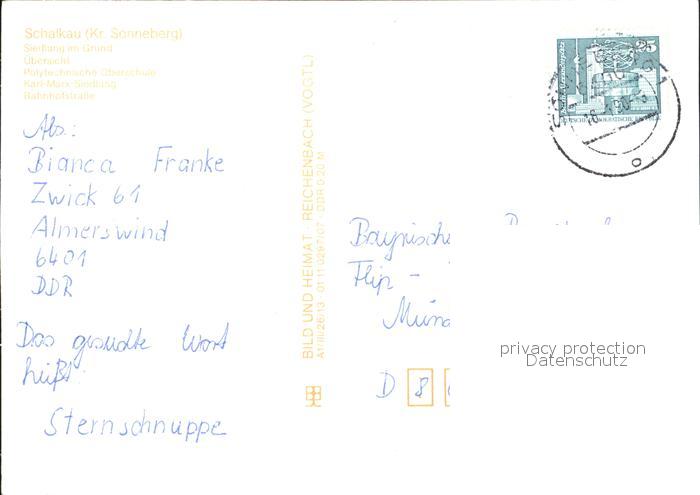 Schalkau (Kr. Sonneberg)
Siedlung im Grund
Übersicht
Polytechnische Oberschule
Karl-Marx-Siedlung
Bahnhofstraße
Abs.:
Bianca Franke
Zwick 61
Almerswind
6401
DDR
Das gesuchte Wort
heißt:
Sternschnuppe
BILD UND HEIMAT REICHENBACH (VOGTL)
A1/III/26/13 01 11 0297/07 DDR 0,20 M
25
Bayrische
Flip -
Münc
D 8
privacy protection
Datenschutz